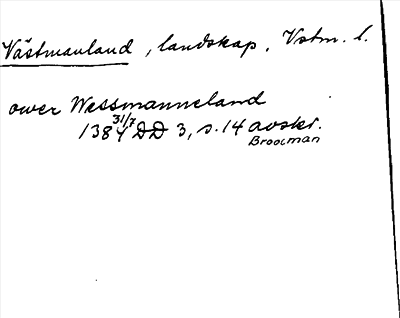 Västmanland, landskap. Vstm. l.
ower Wessmanneland
31/7
1384 DD 3, s. 14 avskr.
Broocman